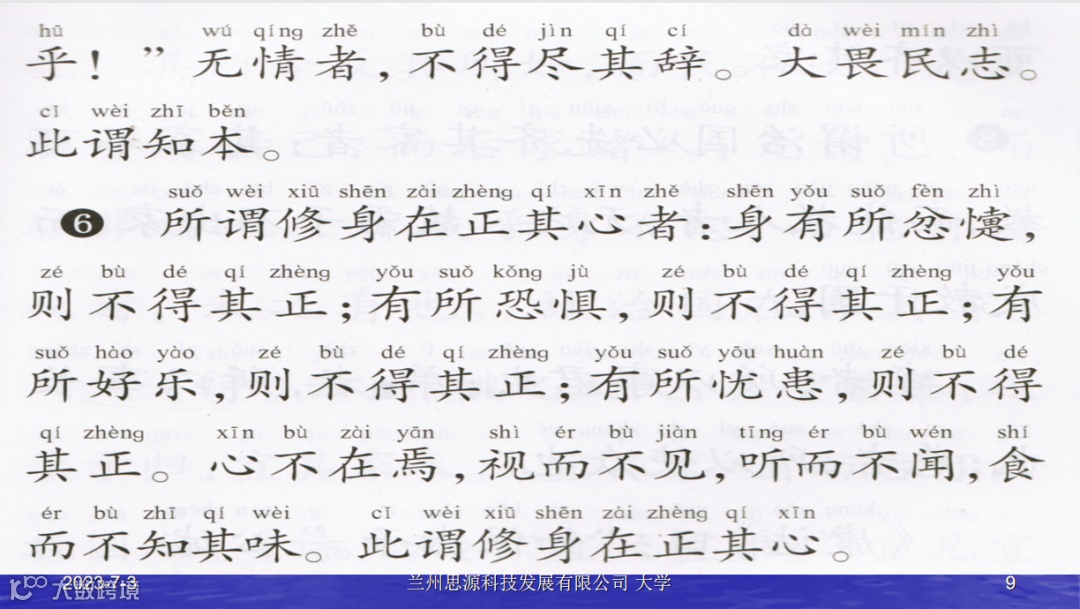 hū wú qíng zhě bù dé jìn qí cí dà wèi mín zhì
乎！”无情者，不得尽其辞。大畏民志。
cǐ wèi zhī běn
此谓知本。
suǒ wèi xiū shēn zài zhèng qí xīn zhě shēn yǒu suǒ fèn zhì
❻ 所谓修身在正其心者：身有所忿懥，
zé bù dé qí zhèng yǒu suǒ kǒng jù zé bù dé qí zhèng yǒu
则不得其正；有所恐惧，则不得其正；有
suǒ hào yào zé bù dé qí zhèng yǒu suǒ yōu huàn zé bù dé
所好乐，则不得其正；有所忧患，则不得
qí zhèng xīn bù zài yān shì ér bù jiàn tīng ér bù wén shí
其正。心不在焉，视而不见，听而不闻，食
ér bù zhī qí wèi cǐ wèi xiū shēn zài zhèng qí xīn
而不知其味。此谓修身在正其心。
2023-7-3 兰州思源科技发展有限公司 大学 9
大数跨境